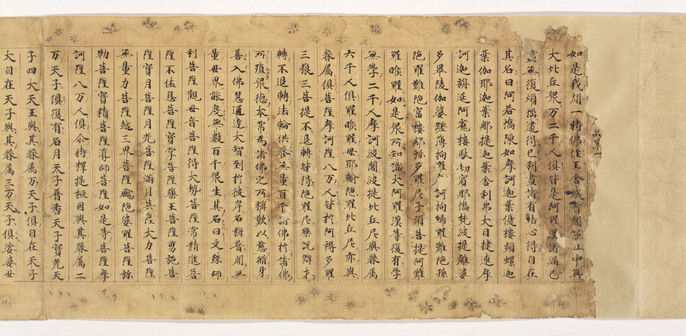 品第一
如是我聞一時佛住王舍城耆闍崛山中與
大比丘眾万二千人俱皆是阿羅漢諸漏已
盡無復煩惱逮得己利盡諸有結心得自在
其名曰阿若憍陳如摩訶迦葉優樓頻螺迦
葉伽耶迦葉那提迦葉舍利弗大目揵連摩
訶迦旃延阿㝹樓馱劫賓那憍梵波提離婆
多畢陵伽婆蹉薄拘羅摩訶拘絺羅難陀孫
陀羅難陀富樓那彌多羅尼子須菩提阿難
羅睺羅如是眾所知識大阿羅漢等復有學
無學二千人摩訶波闍波提比丘尼與眷屬
六千人俱羅睺羅母耶輸陀羅比丘尼亦與
眷屬俱菩薩摩訶薩八万人皆於阿耨多羅
三藐三菩提不退轉皆得陀羅尼樂說辯才
轉不退轉法輪供養無量百千諸佛於諸佛
所殖眾德本常為諸佛之所稱歎以慈脩身
善入佛慧通達大智到於彼岸名稱普聞無
量世界能度無數百千眾生其名曰文殊師
利菩薩觀世音菩薩得大勢菩薩常精進菩
薩不休息菩薩寶掌菩薩藥王菩薩勇施菩
薩寶月菩薩月光菩薩滿月菩薩大力菩薩
無量力菩薩越三界菩薩颰陀婆羅菩薩彌
勒菩薩寶積菩薩導師菩薩如是等菩薩摩
訶薩八万人俱尒時釋提桓因與其眷屬二
万天子俱復有名月天子普香天子寶光天
子四大天王與其眷屬万天子俱自在天子
大自在天子與其眷屬三万天子俱娑婆世